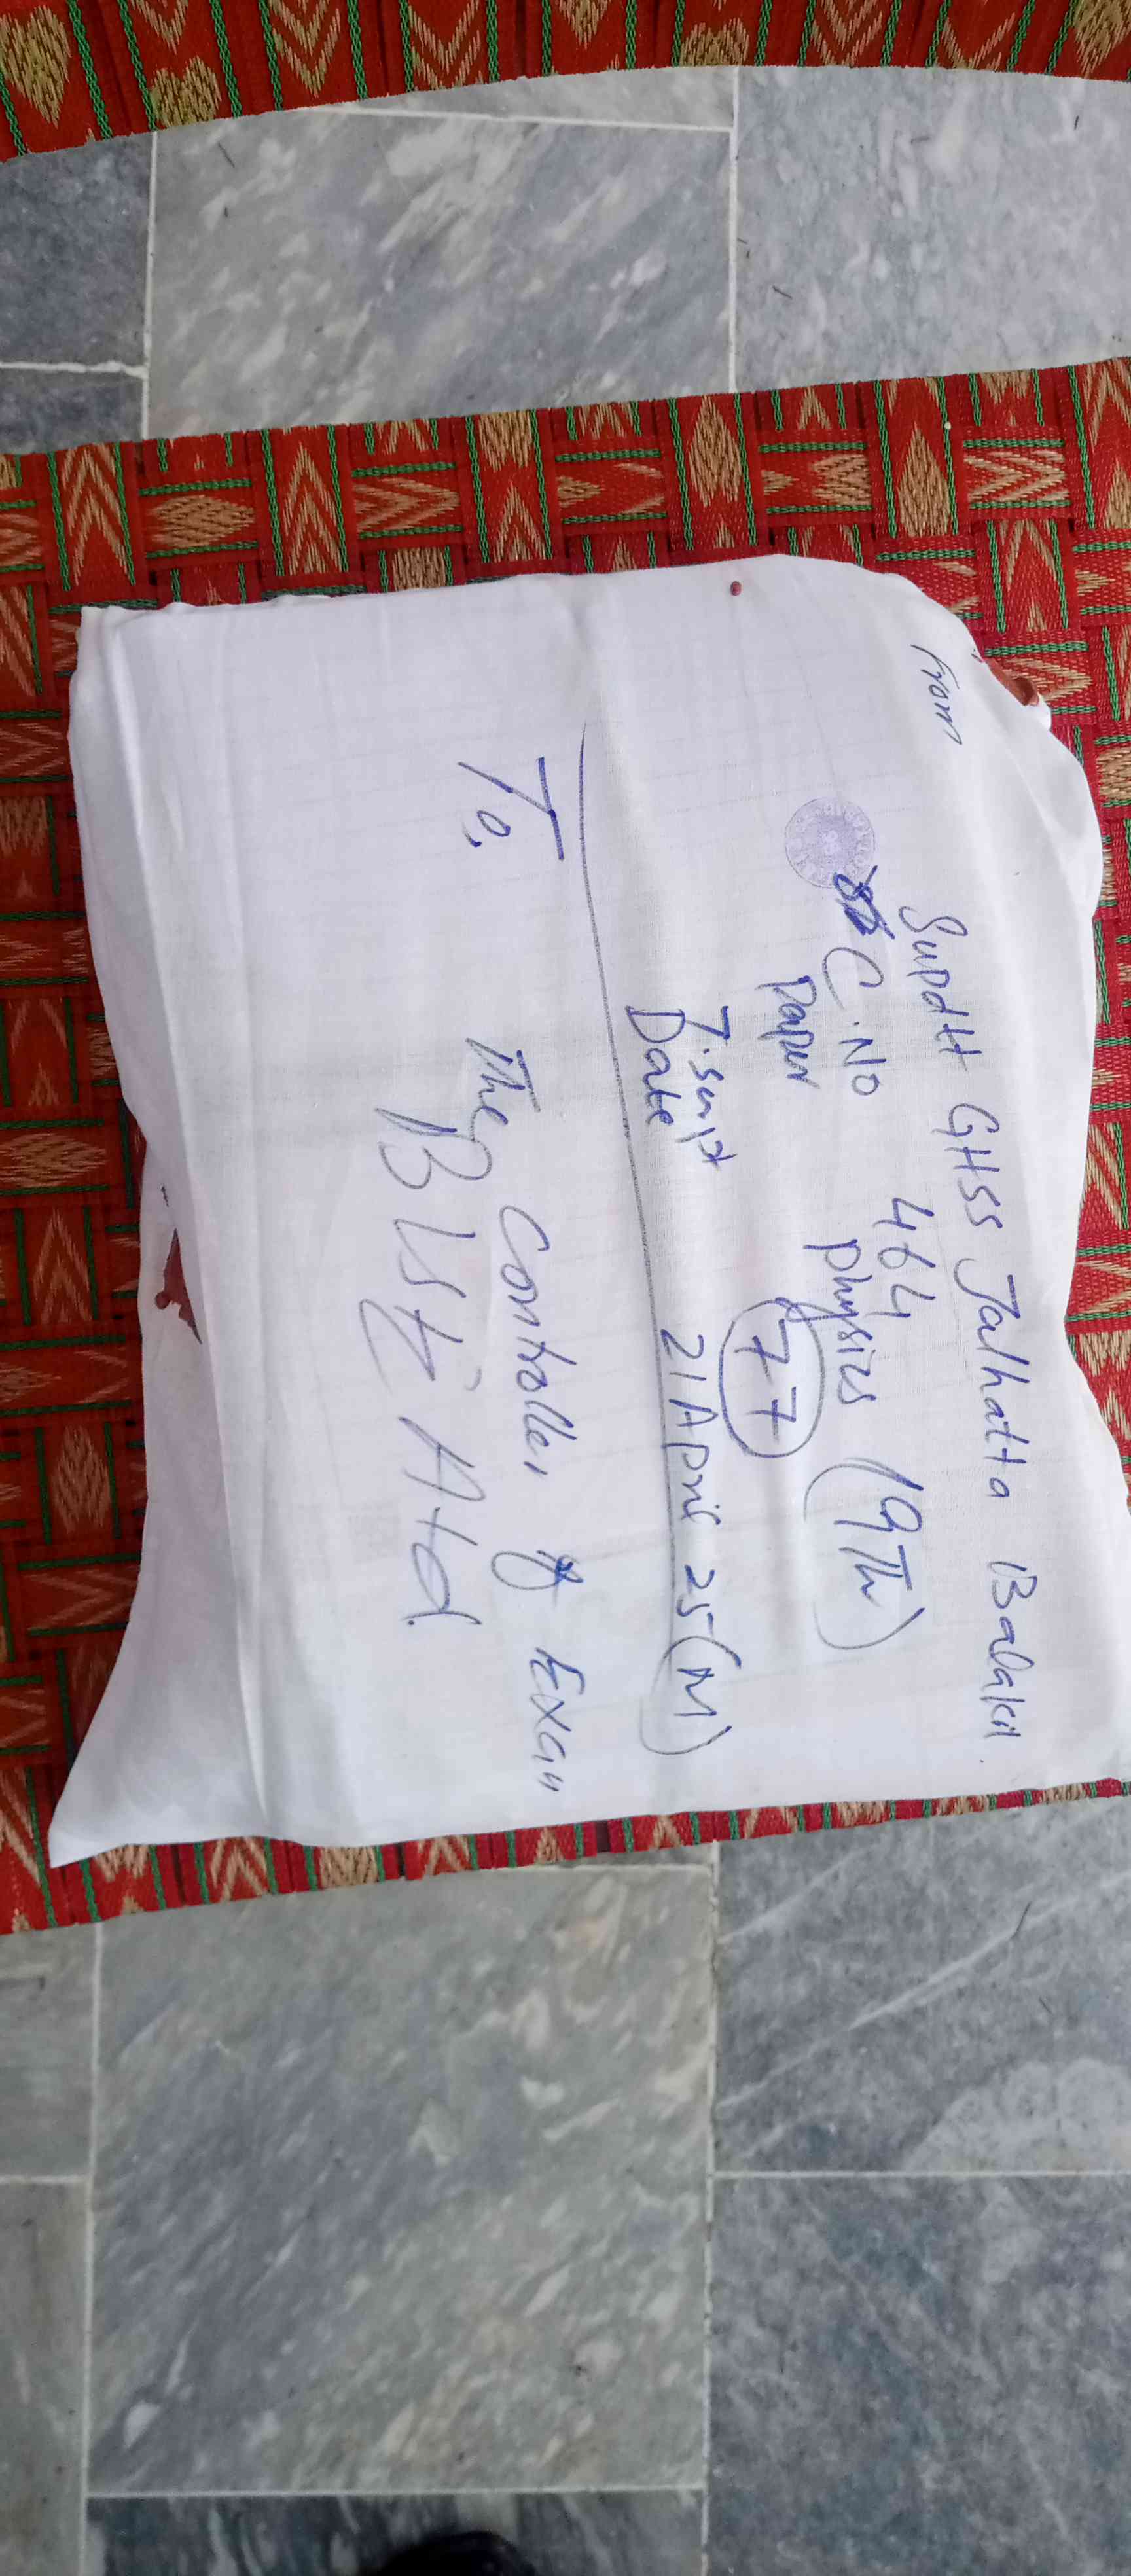 From
Supdtt GHSS Jalhatta Balakot.
C.No 464
Paper physics (9Th)
T.script 77
Date 21 April 25 (M)
To,
The Controller of Exam
BISE Atd